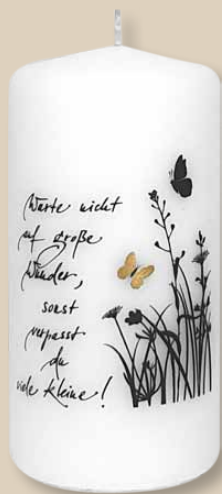 Warte nicht
auf große
Wunder,
sonst
verpasst
du
viele kleine!